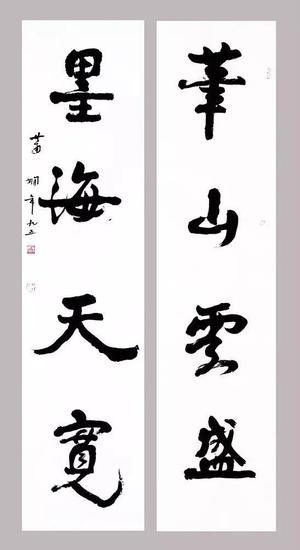 華山雲盛
墨海天寬
蕭嫻年九五